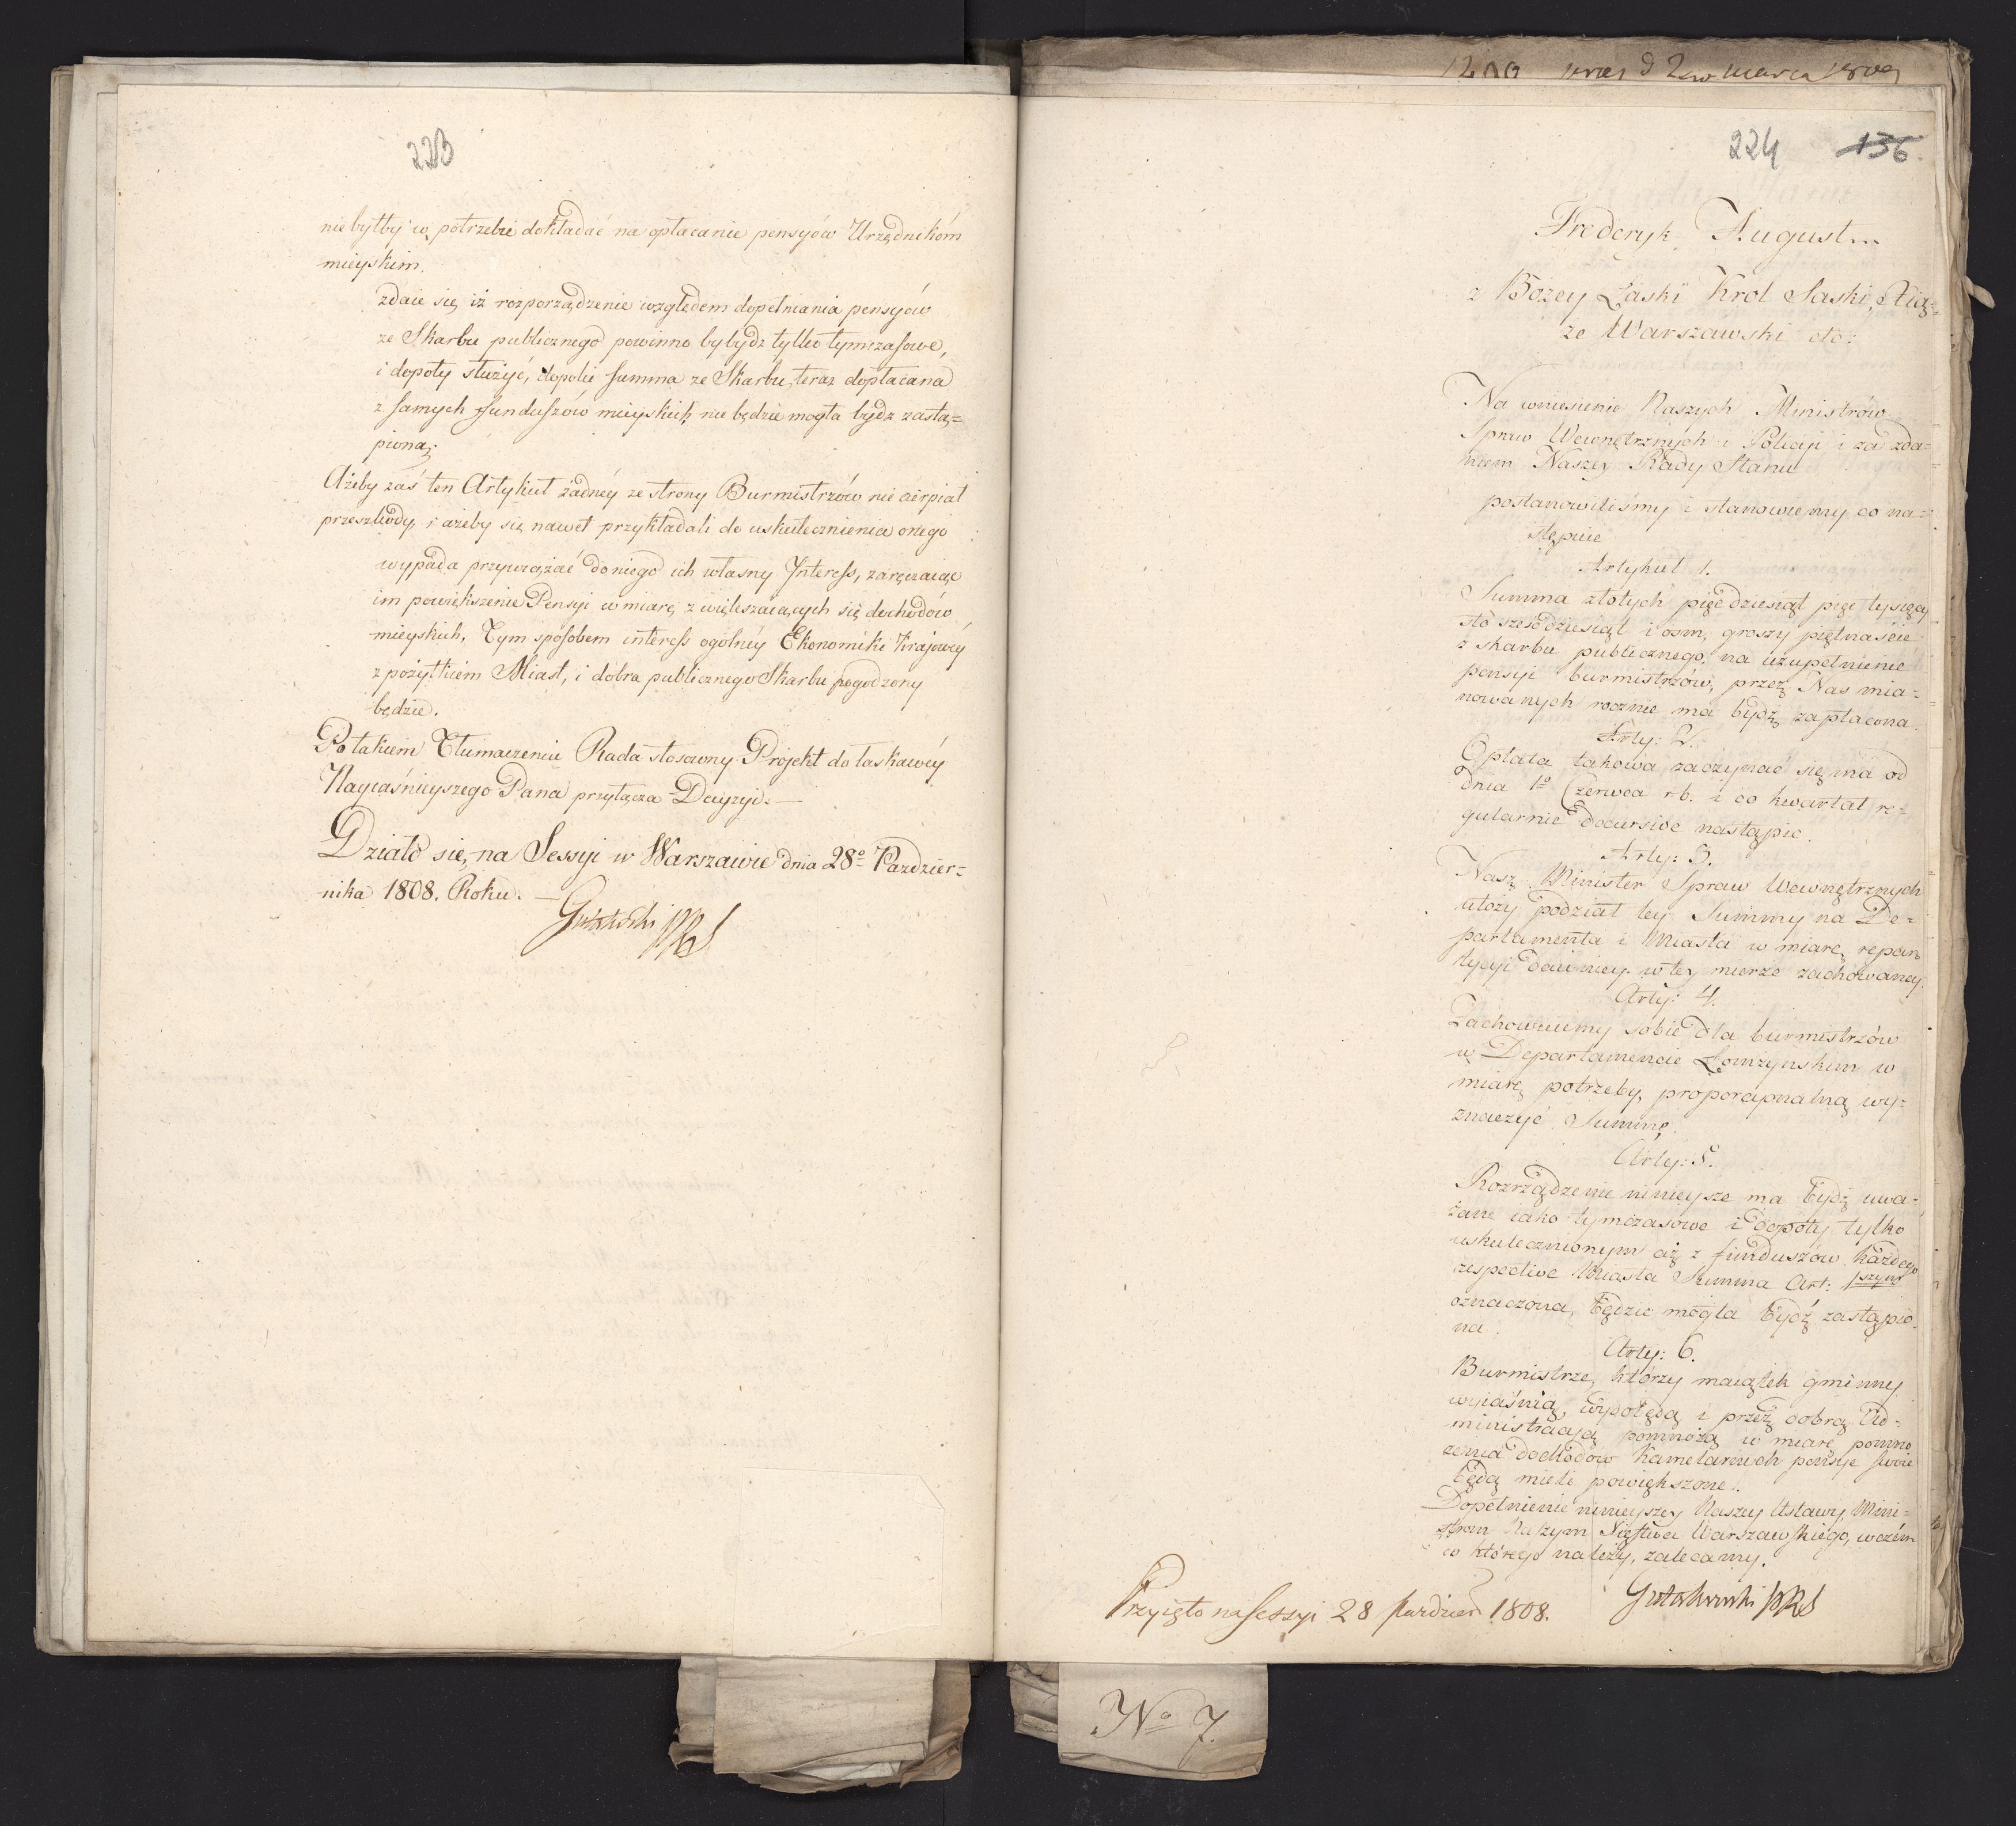 223
nie byłby w potrzebie dokładać na opłacanie pensyów Urzędnikóm
mieyskim.
zdaie się iż rozporządzenie względem dopełniania pensyów
ze Skarbu publicznego powinno by bydz tylko tymczasowe,
i dopoty służyć, dopoki summa ze Skarbu teraz dopłacana
z samych funduszów mieyskich nie będzie mogła bydz zastą=
piona;
Ażeby zaś ten Artykuł żadnéy ze strony Burmistrzów nie cierpiał
przeszkody, i ażeby się nawet przykładali do uskutecznienia onego
wypada przywiązać do niego ich własny Interess, zaręczaiąc
im powiększenie Pensyi w miarę zwiększaiących się dochodów
mieyskich. Tym sposobem interess ogólnéy Ekonomiki Krajowéy
z pożytkiem Miast, i dobra publicznego Skarbu pogodzony
będzie.
Po takiem Tłumaczeniu Rada stosowny Projekt do łaskawéy
Nayiaśnieyszego Pana przyłącza Decyzyi. —
Działo się na Sessyi w Warszawie dnia 28º Pazdzier=
nika 1808. Roku. —
Gutakowski PRS
1209 prez d 2go marca 1809
224 136
Frederyk August
z Bożey Łaski Krol Saski, Xią=
że Warszawski etc:
Na wniesienie Naszych Ministrów
Spraw Wewnętrznych i Policyi i za zda=
niem Naszey Rady Stanu
postanowiliśmy i stanowiemy co na=
stępuie
Artykuł 1.
Summa złotych pięcdziesiąt pięc tysięcy
sto szescdziesiąt i osm, groszy piętnaście
z skarbu publicznego, na uzupełnienie
pensyi burmistrzów, przez Nas mia=
nowanych rocznie ma bydź zapłacona.
Arty: 2.
Opłata takowa zaczynać się ma od
dnia 1º Czerwca r. b. i co kwartał re=
gularnie decursive nastąpic.
Arty: 3.
Nasz Minister Spraw Wewnętrznych
ułozy podział tey Summy na De=
partamenta i Miasta w miarę repar
tycyi dawniey w tey mierze zachowaney.
Arty: 4.
Zachowuiemy sobie dla burmistrzów
w Departamencie Łomzynskim w
miarę potrzeby, proporcyonalną wy=
znaczyć Summę.
Arty: 5.
Rozrządzenie ninieysze ma bydź uwa=
żane iako tymczasowe i dopoty tylko
uskutecznionym aż z funduszów każdego
respective Miasta Summa Art: 1szym
oznaczona, będzie mogła bydź zastąpio
na.
Arty: 6.
Burmistrze, którzy maiątek gminny
wyiaśnią, i przez dobrą Ad=
ministracyą pomnożą w miarę pomno
żenia dochodów Kamelarnych pensye swoie
będą mieli powiększone.
Dopełnienie ninieyszey Naszey Ustawy, Mini=
strom Naszym Xięstwa Warszawskiego, w czém
co którego należy, zalecamy.
Przyięto na sessyi 28 Pazdzier 1808. Gutakowski PRS
No 7.